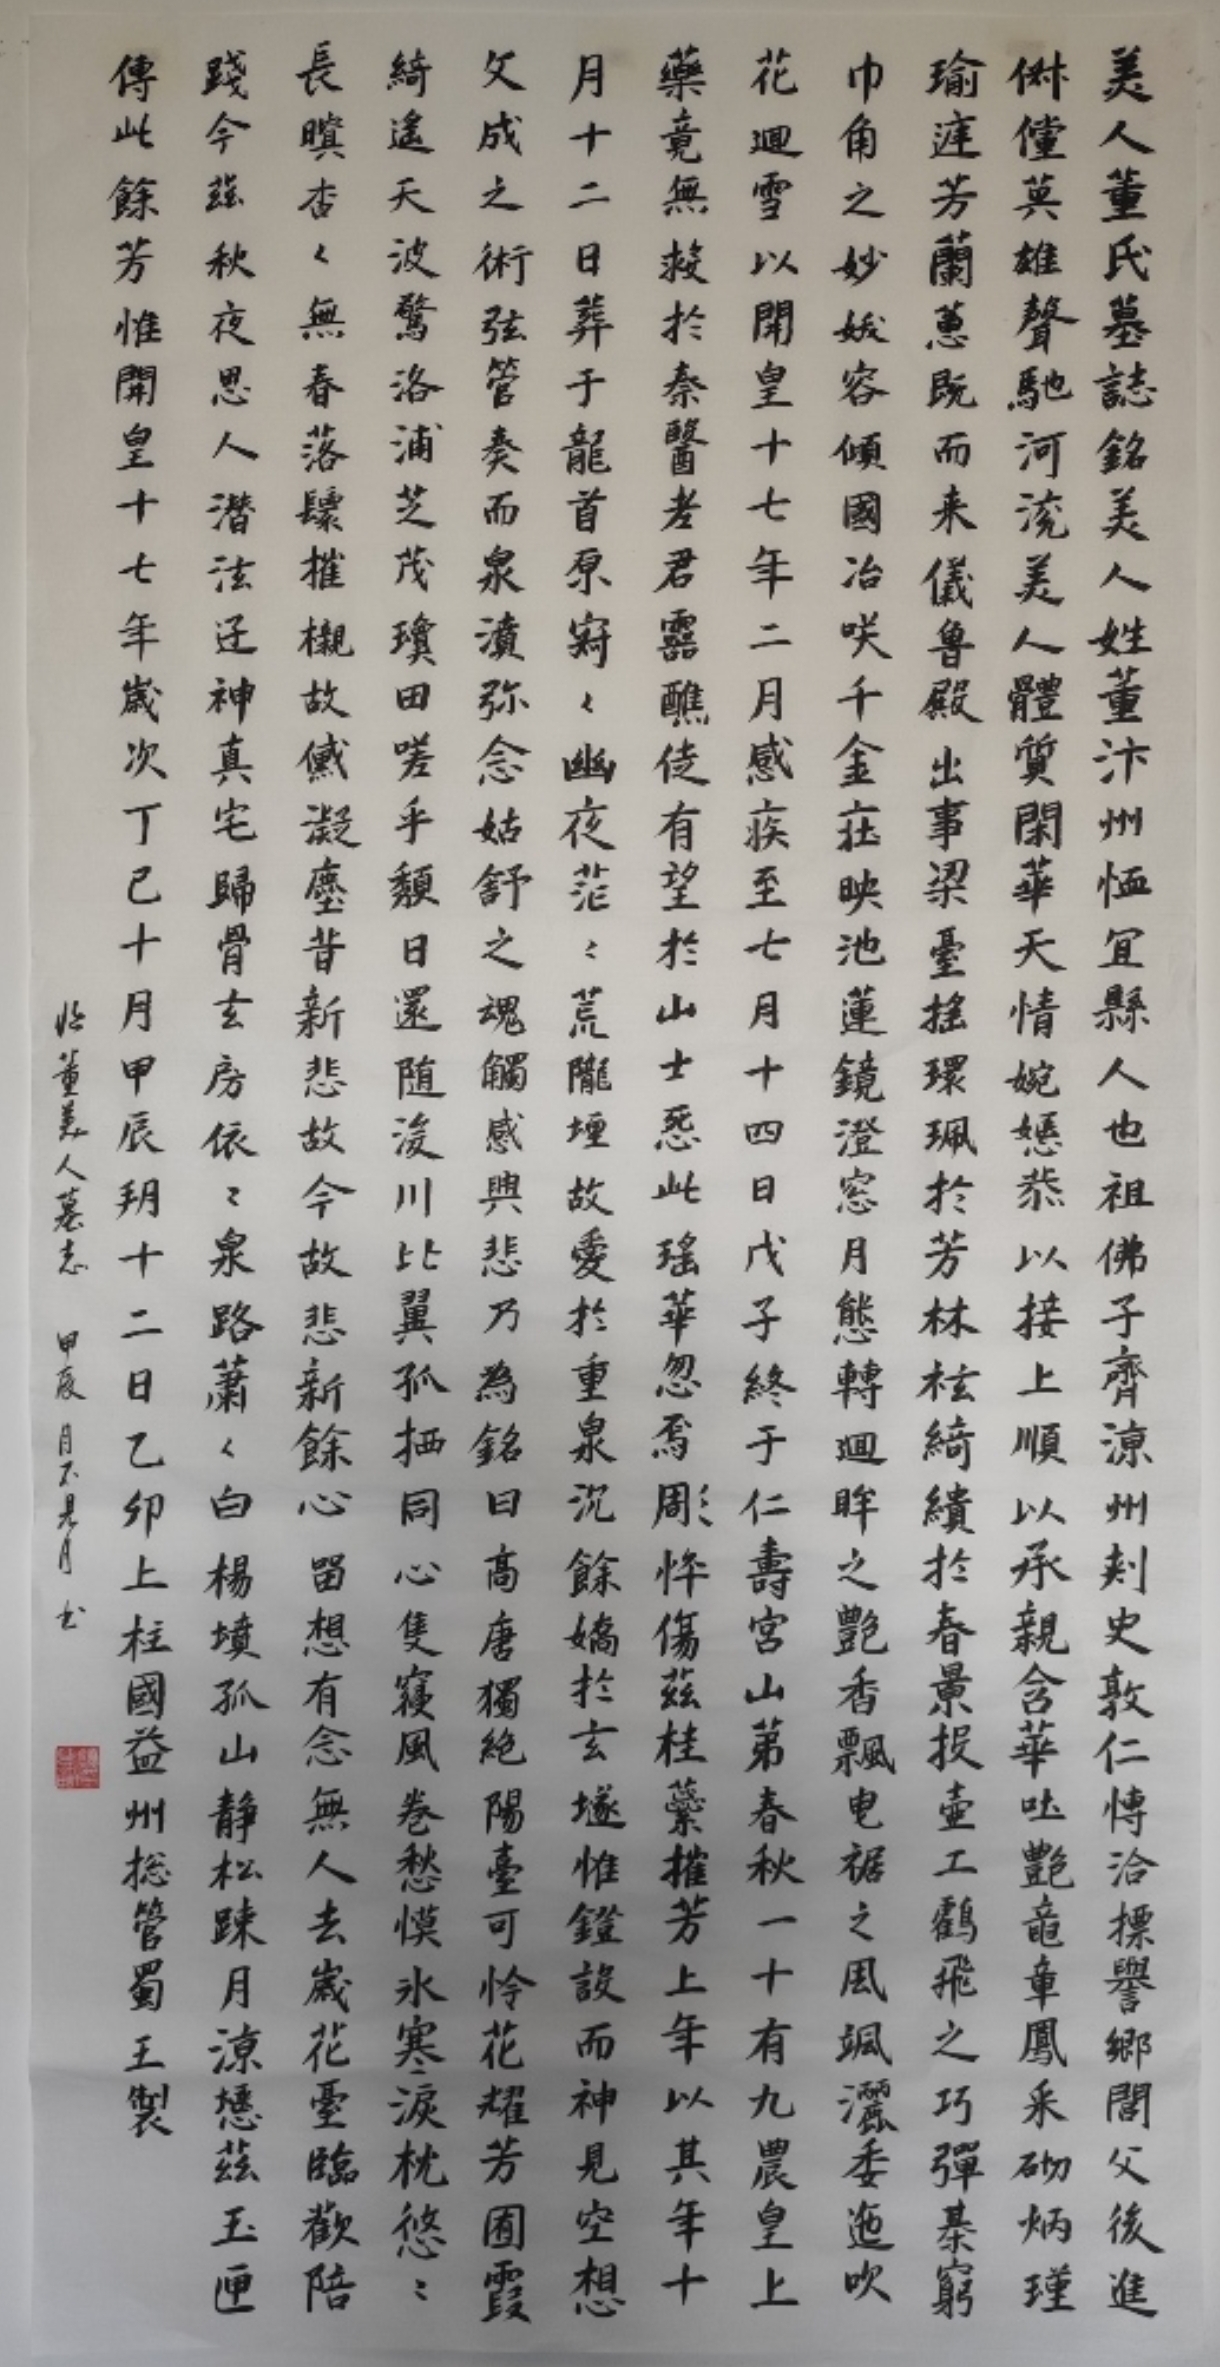 美人董氏墓誌銘美人姓董汴州恤宜縣人也祖佛子齊涼州刺史敦仁博洽摽譽鄉閭父後進
俶儻英雄聲馳河流美人體質閑華天情婉嫕恭以接上順以承親含華吐艷竜章鳳采砌炳瑾
瑜庭芳蘭蕙既而来儀魯殿出事梁臺搖環珮於芳林袨綺繢於春景投壺工鶴飛之巧彈棊窮
巾角之妙媺容傾國冶咲千金莊映池蓮鏡澄窓月態轉迴眸之艷香飄曳裾之風颯灑委迤吹
花迴雪以開皇十七年二月感疾至七月十四日戊子終于仁壽宮山第春秋一十有九農皇上
藥竟無救於秦醫老君靈醮徒有望於山士怨此瑤華忽焉彫悴傷茲桂蘂摧芳上年以其年十
月十二日葬于龍首原寂〻幽夜茫〻荒隴埋故愛於重泉沉餘嬌於玄墜惟鐙設而神見空想
文成之術弦管奏而泉濆弥念姑舒之魂觸感興悲乃為銘曰高唐獨絶陽臺可怜花耀芳囿霞
綺遙天波驚洛浦芝茂瓊田嗟乎頽日還隨浚川比翼孤栖同心隻寢風卷愁幙氷寒淚枕悠〻
長暝杳〻無春落鬟摧櫬故黛凝塵昔新悲故今故悲新餘心留想有念無人去歲花臺臨歡陪
踐今茲秋夜思人潛泫迋神真宅歸骨玄房依〻泉路蕭〻白楊墳孤山静松踈月涼瘞茲玉匣
傳此餘芳惟開皇十七年歲次丁巳十月甲辰朔十二日乙卯上柱國益州総管蜀王製
临董美人墓志 甲辰 月不見月 书